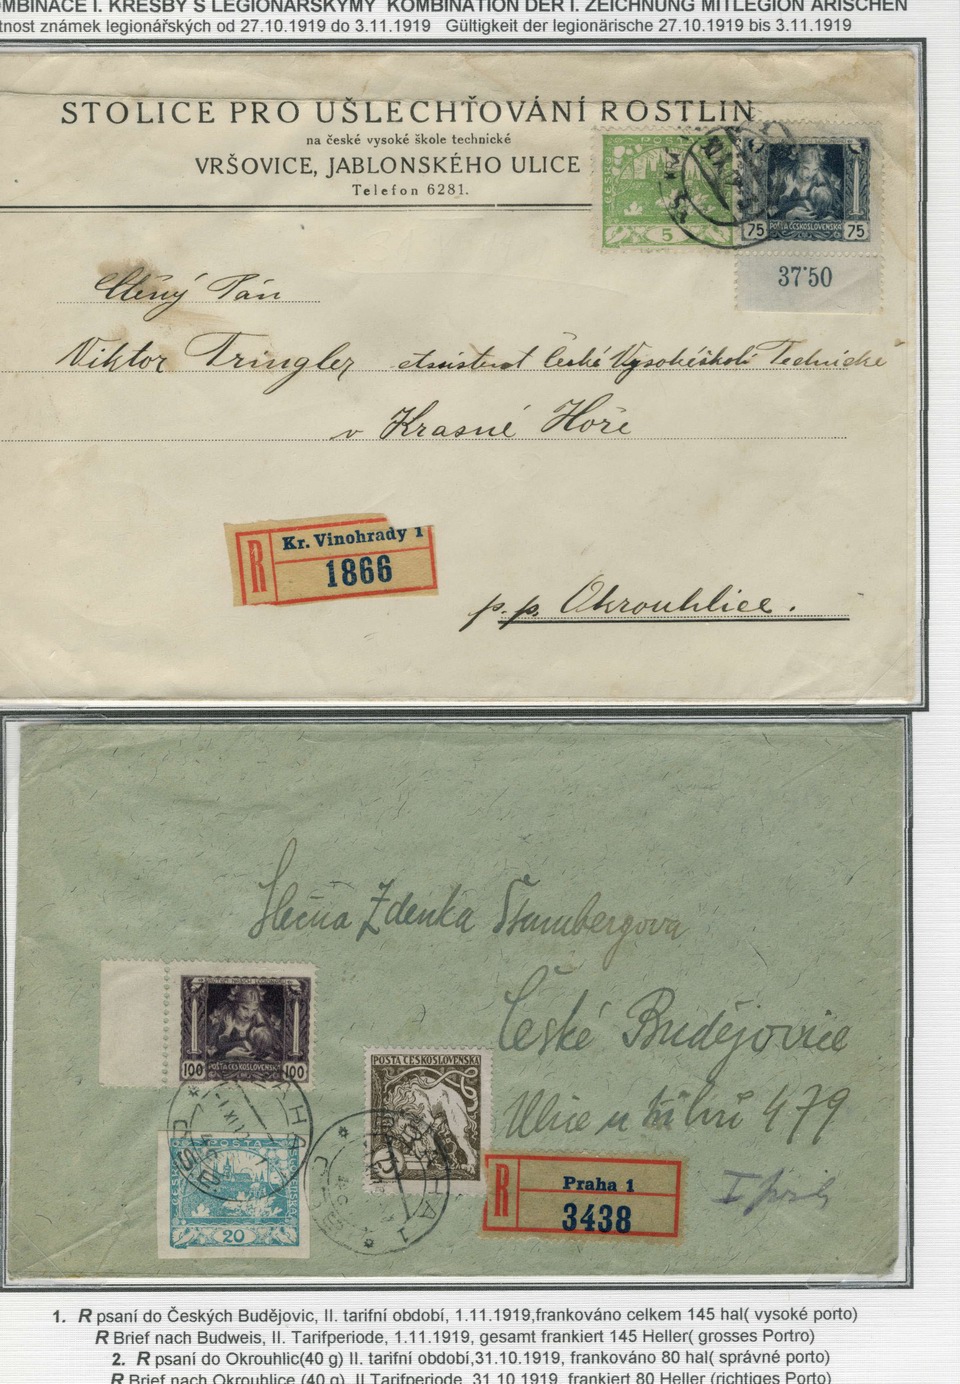 OMBINACE I. KRESBY S LEGIONÁŘSKÝMY KOMBINATION DER I. ZEICHNUNG MITLEGION ARISCHEN
tnost známek legionářských od 27.10.1919 do 3.11.1919 Gültigkeit der legionärische 27.10.1919 bis 3.11.1919
STOLICE PRO UŠLECHŤOVÁNÍ ROSTLIN
na české vysoké škole technické
VRŠOVICE, JABLONSKÉHO ULICE
Telefon 6281.
5
75 POŠTA ČESKOSLOVENSKÁ 75
37·50
Ctěný Pán
Viktor Tringler assistent České Vysoké školi Technické
v Krasné Hoře
R Kr. Vinohrady 1
1866
p.p. Okrouhlice.
Slečna Zdenka Štambergova
České Budějovice
Ulice u tří lvů 479
100 POŠTA ČESKOSLOVENSKÁ 100
POŠTA ČESKOSLOVENSKÁ
PRAHA 1
20
R Praha 1
3438
1. R psaní do Českých Budějovic, II. tarifní období, 1.11.1919,frankováno celkem 145 hal( vysoké porto)
R Brief nach Budweis, II. Tarifperiode, 1.11.1919, gesamt frankiert 145 Heller( grosses Portro)
2. R psaní do Okrouhlic(40 g) II. tarifní období,31.10.1919, frankováno 80 hal( správné porto)
R Brief nach Okrouhlice (40 g), II.Tarifperiode, 31.10.1919, frankiert 80 Heller (richtiges Porto)